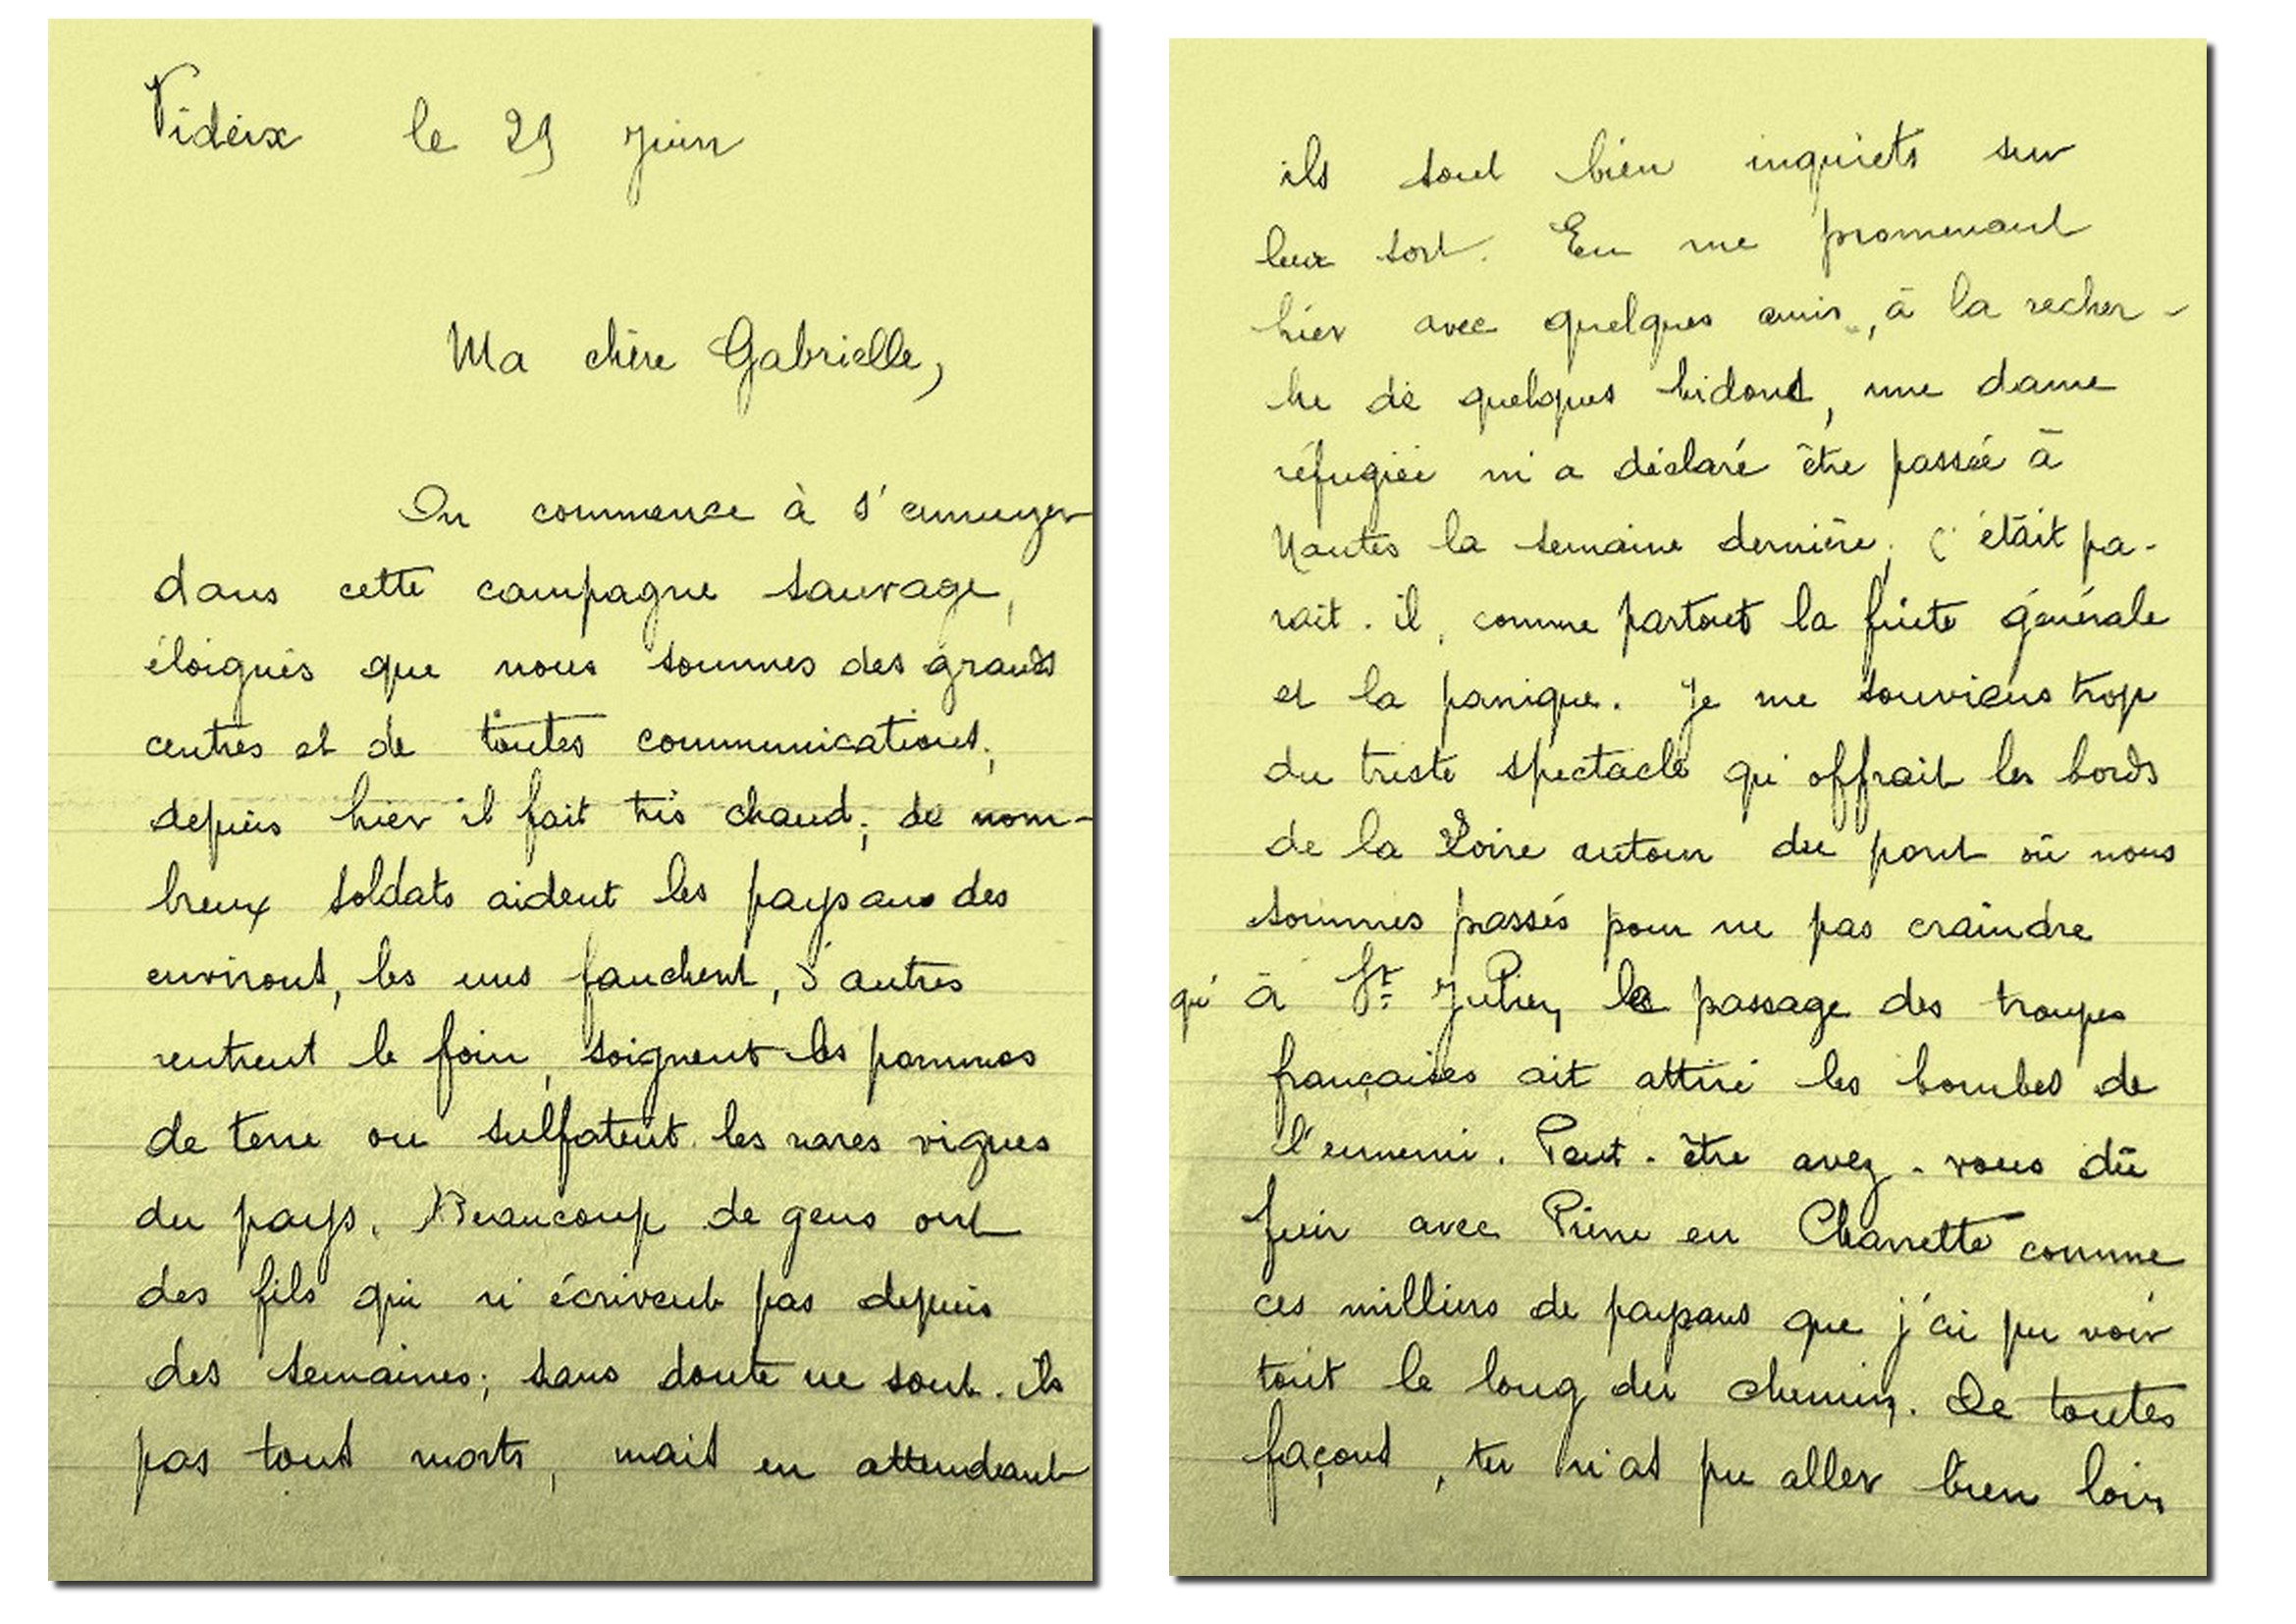 Vidéix le 29 juin
Ma chère Gabrielle,
On commence à s'ennuyer
dans cette campagne sauvage,
éloignés que nous sommes des grands
centres et de toutes communications;
depuis hier il fait très chaud; de nom-
breux soldats aident les paysans des
environs, les uns fauchent, d'autres
rentrent le foin, soignent les pommes
de terre ou sulfatent les rares vignes
du pays. Beaucoup de gens ont
des fils qui n'écrivent pas depuis
des semaines; sans doute ne sont-ils
pas tous morts, mais en attendant
ils sont bien inquiets sur
leur sort. En me promenant
hier avec quelques amis, à la recher-
che de quelques bidons, une dame
réfugiée m'a déclaré être passée à
Nantes la semaine dernière; c'était pa-
rait-il, comme partout la fuite générale
et la panique. Je me souviens trop
du triste spectacle qu'offrait les bords
de la Loire autour du pont où nous
sommes passés pour ne pas craindre
qu'à St Julien, le passage des troupes
françaises ait attiré les bombes de
l'ennemi. Peut-être avez-vous dû
fuir avec Pierre en Charrette comme
ces milliers de paysans que j'ai pu voir
tout le long du chemin. De toutes
façons, tu n'as pu aller bien loin